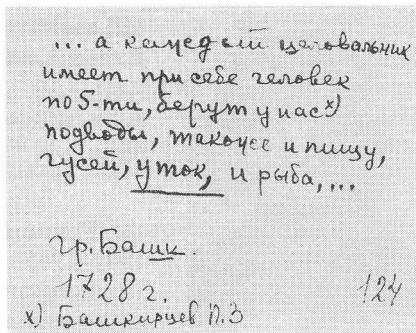 ... а каждый целовальник
имеет при себе человек
по 5-ти, берут у нас x)
подводы, также и пищу,
гусей, уток, и рыба, ...
гр. Башк.
1728 г.
124
x) Башкирцев П.З